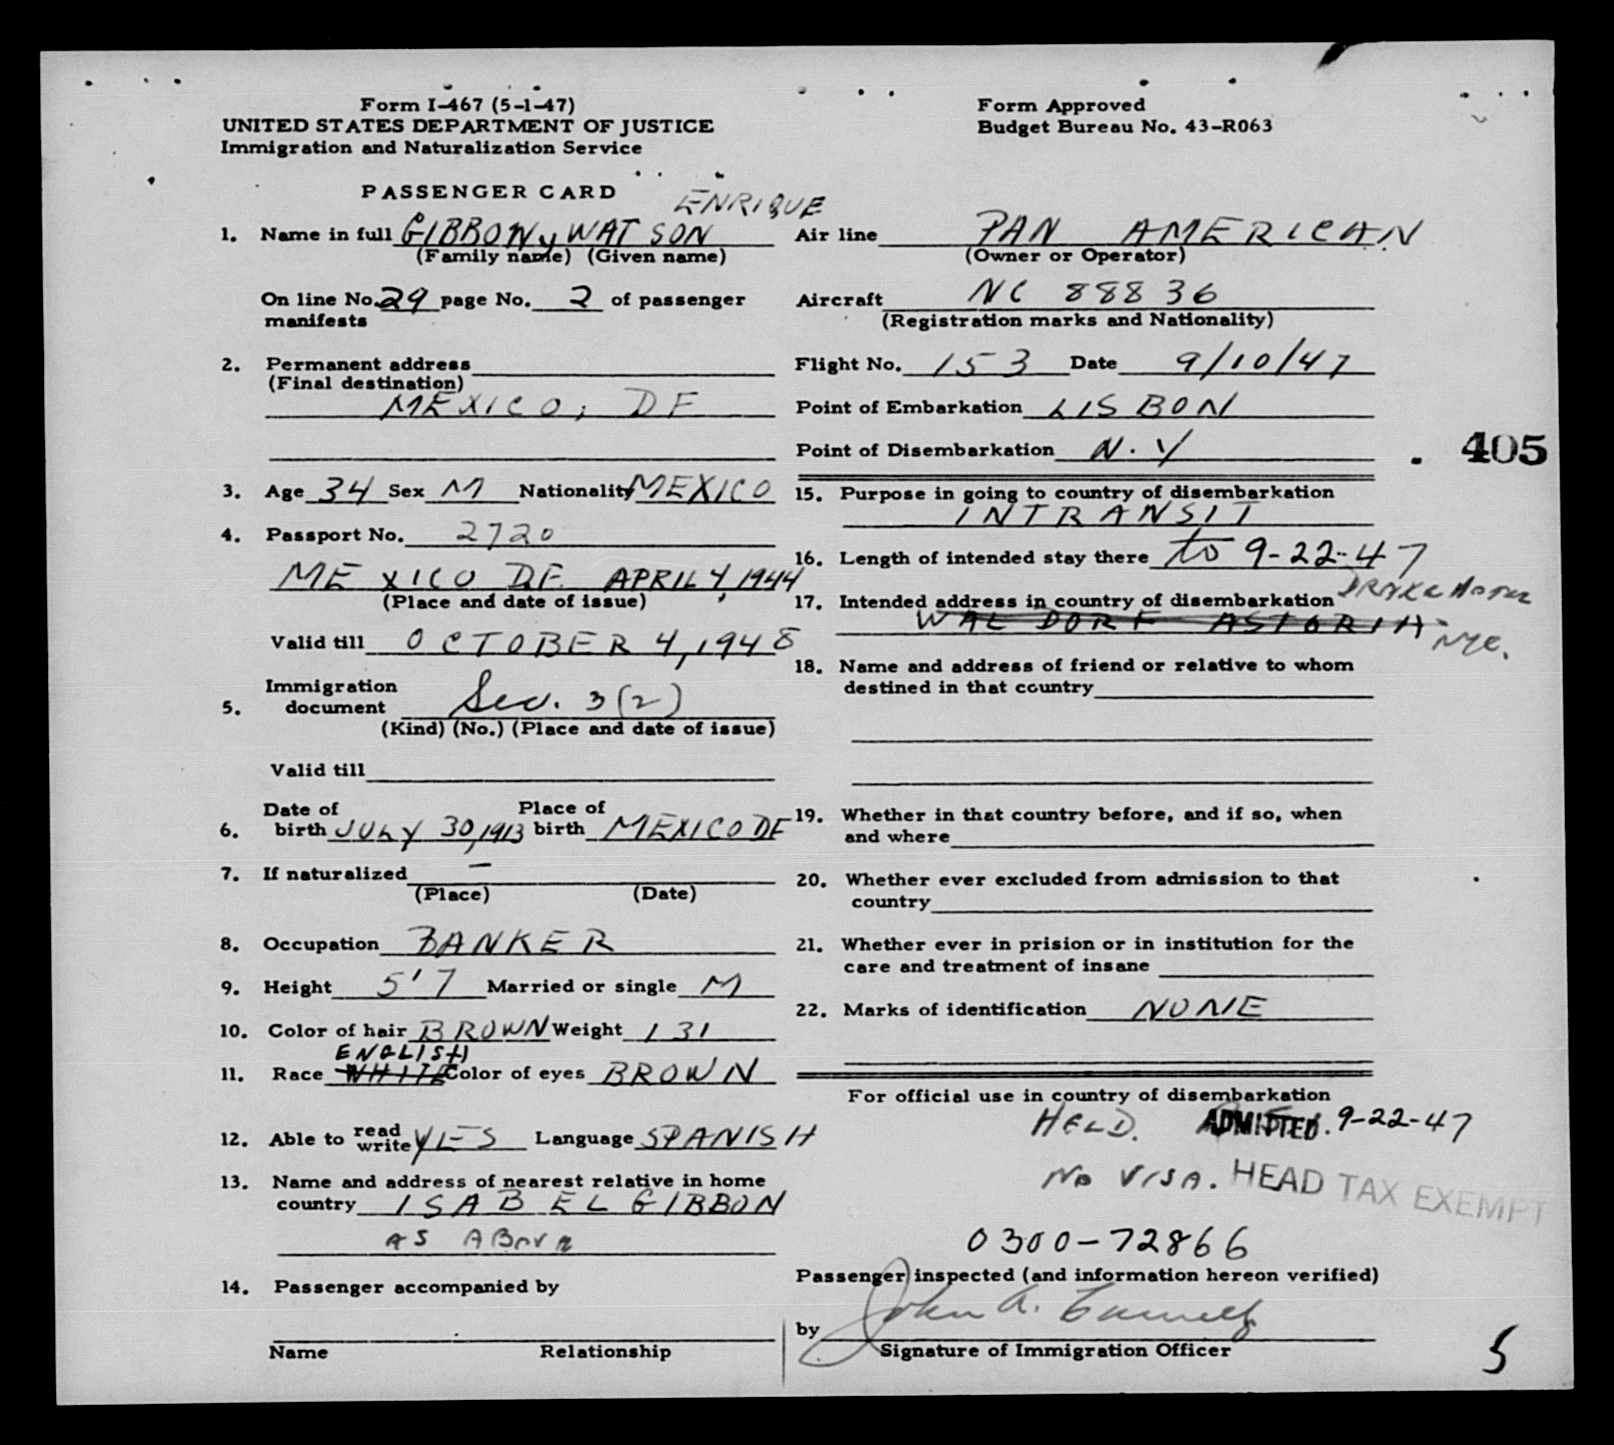 Form I-467 (5-1-47)
UNITED STATES DEPARTMENT OF JUSTICE
Immigration and Naturalization Service
Form Approved
Budget Bureau No. 43-R063
PASSENGER CARD
ENRIQUE
1. Name in full GIBBON y WATSON
(Family name) (Given name)
On line No. 29 page No. 2 of passenger
manifests
2. Permanent address
(Final destination)
MEXICO, DF
3. Age 34 Sex M Nationality MEXICO
4. Passport No. 2720
MEXICO D.F. APRIL 4, 1944
(Place and date of issue)
Valid till OCTOBER 4, 1948
Immigration
5. document Sec. 3 (2)
(Kind) (No.) (Place and date of issue)
Valid till
Date of Place of
6. birth JULY 30, 1913 birth MEXICO DF
7. If naturalized –
(Place) (Date)
8. Occupation BANKER
9. Height 5'7 Married or single M
10. Color of hair BROWN Weight 131
ENGLISH
11. Race WHITE Color of eyes BROWN
12. Able to read write YES Language SPANISH
13. Name and address of nearest relative in home
country ISABEL GIBBON
AS ABOVE
14. Passenger accompanied by
Name Relationship
Air line PAN AMERICAN
(Owner or Operator)
Aircraft NC 88836
(Registration marks and Nationality)
Flight No. 153 Date 9/10/47
Point of Embarkation LISBON
Point of Disembarkation N.Y
. 405
15. Purpose in going to country of disembarkation
INTRANSIT
16. Length of intended stay there to 9-22-47
17. Intended address in country of disembarkation DRAKE HOTEL
WALDORF ASTORIA NYC.
18. Name and address of friend or relative to whom
destined in that country
19. Whether in that country before, and if so, when
and where
20. Whether ever excluded from admission to that
country
21. Whether ever in prision or in institution for the
care and treatment of insane
22. Marks of identification NONE
For official use in country of disembarkation
HELD. ADMITTED. 9-22-47
NO VISA. HEAD TAX EXEMPT
0300-72866
Passenger inspected (and information hereon verified)
by John A.
Signature of Immigration Officer
5